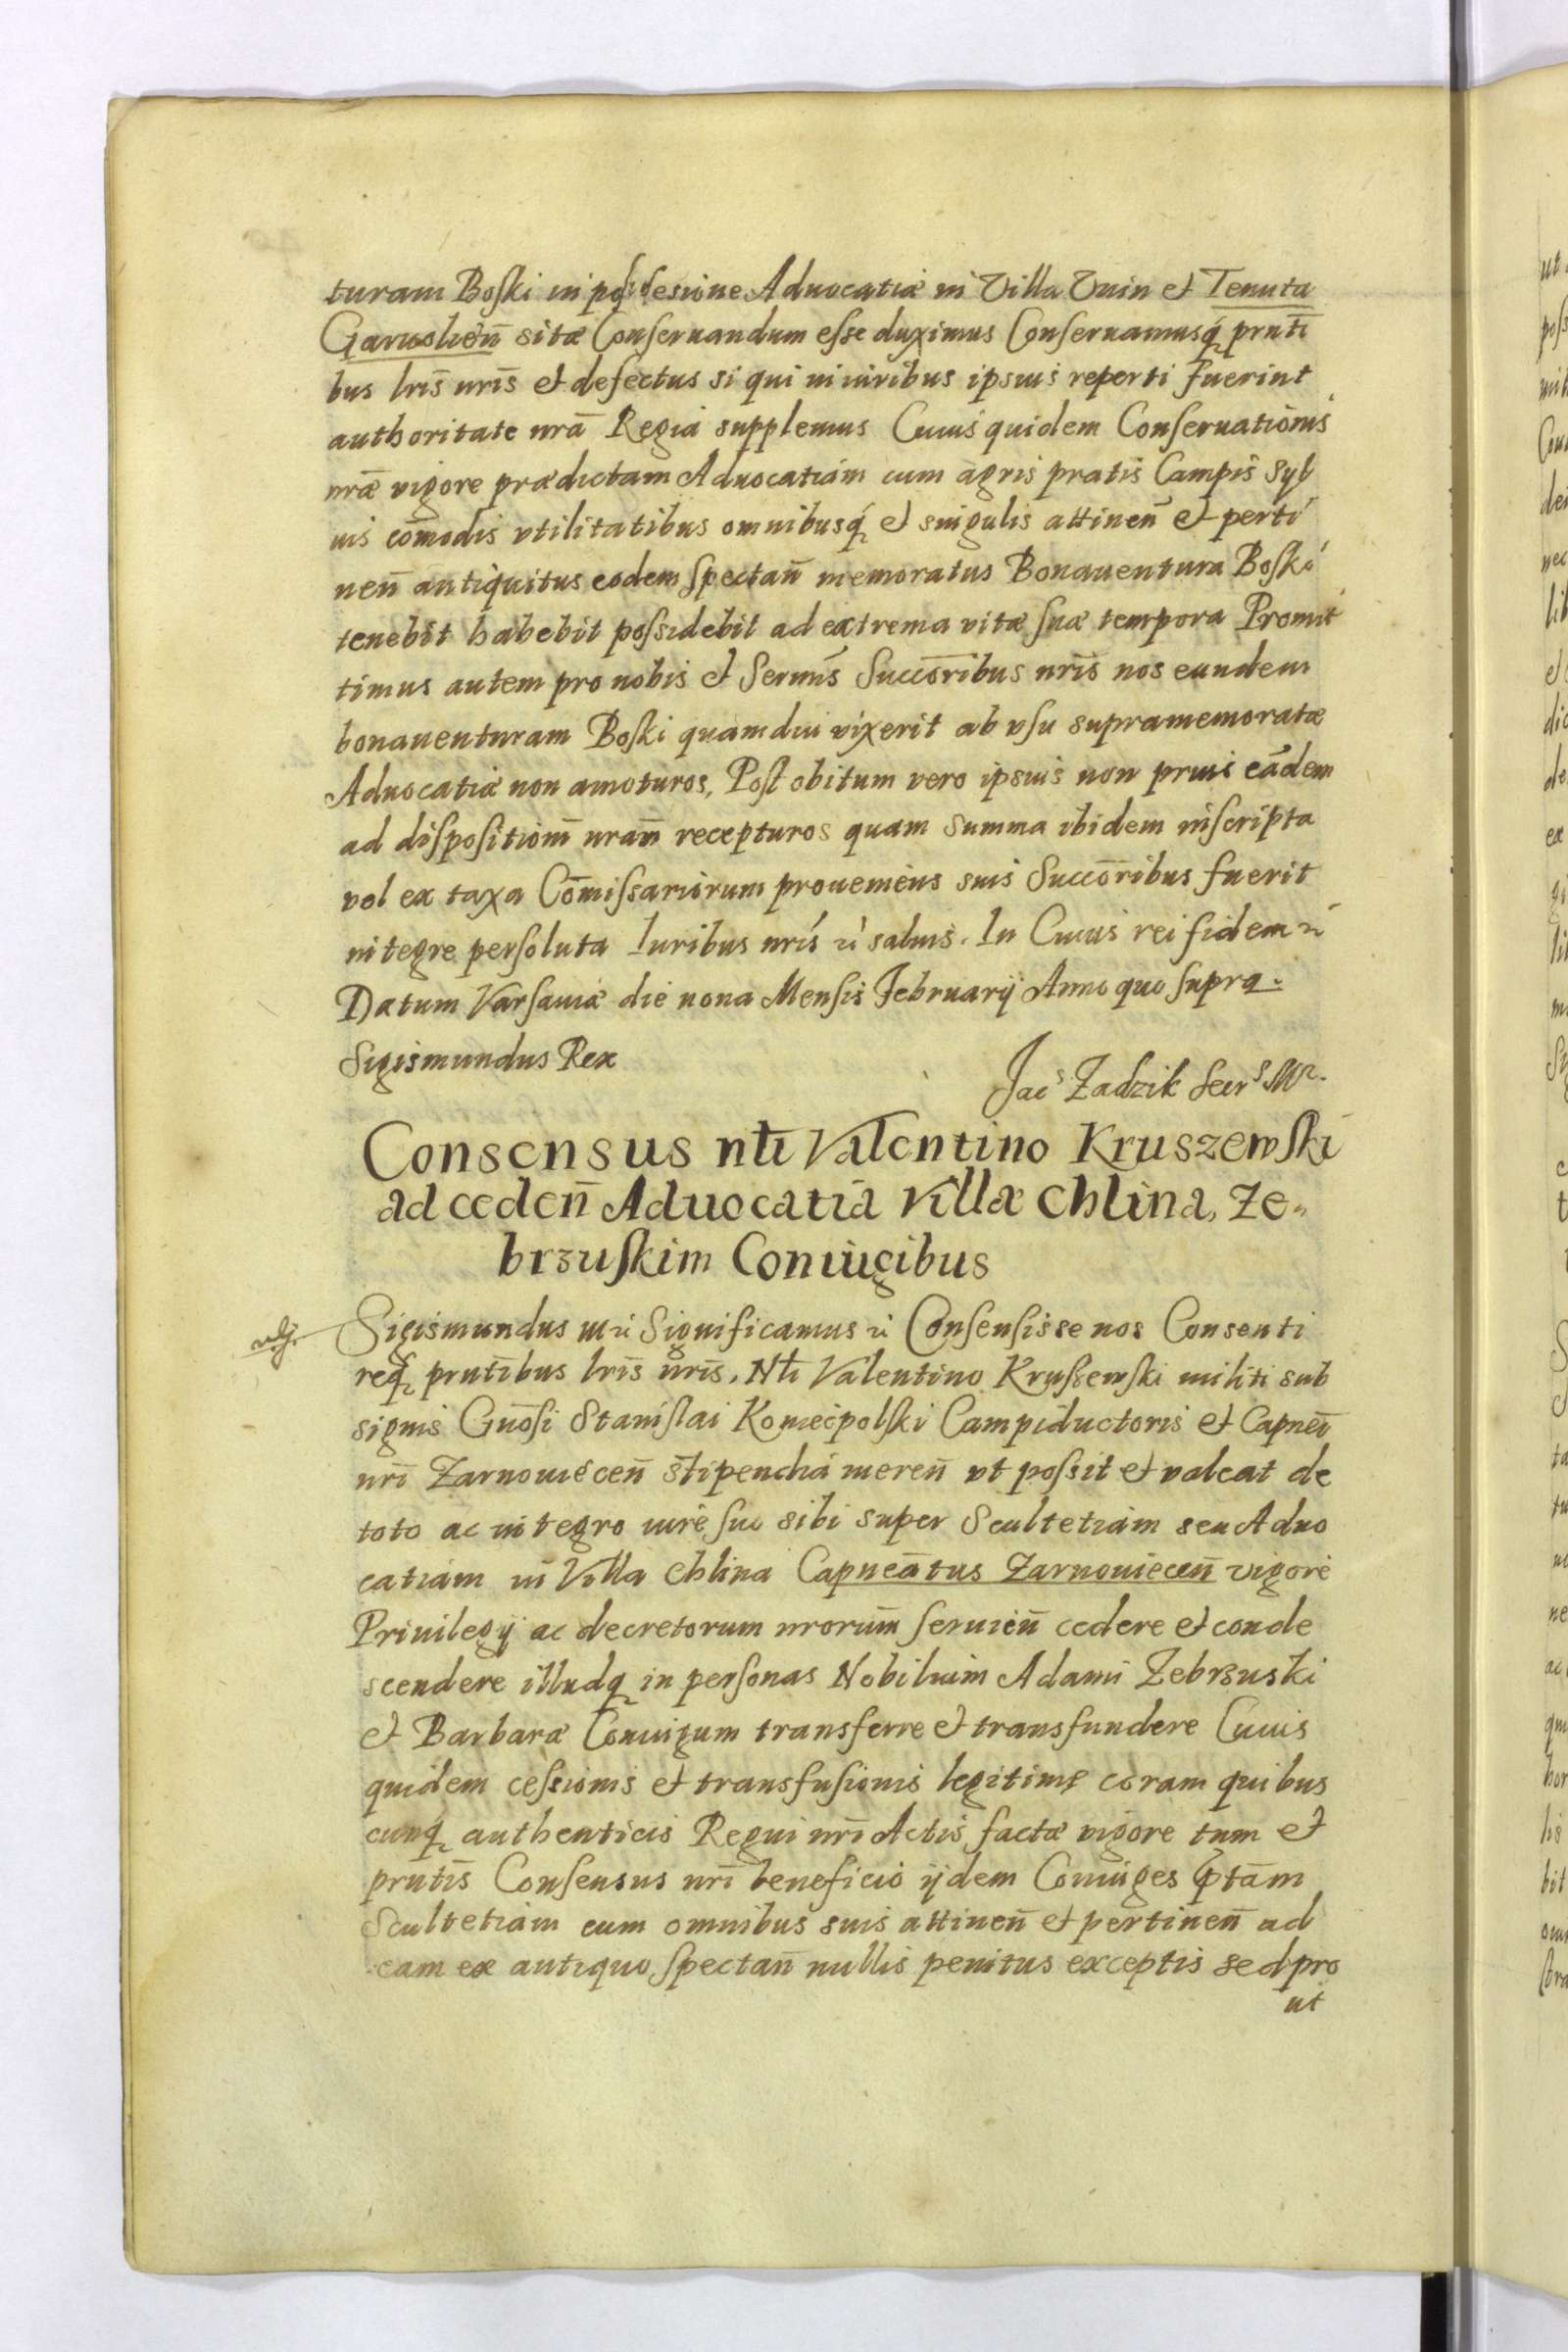 turam Boski in possessione Aduocatiæ in Villa Vnin et Tenuta
Garuolien̄ sitæ Conseruandum esse duximus Conseruamusq̨ prnti
bus lris̄ nris̄ et defectus si qui in iuribus ipsius reperti fuerint
authoritate nrā Regia supplemus Cuius quidem Conseruationis
nrǣ vigore prædictam Aduocatiam cum agris pratis Campis Syl
uis com̄odis vtilitatibus omnibusq̨ et singulis attinen̄ et perti
nen̄ antiquitus eodem spectan̄ memoratus Bonauentura Boski
tenebit habebit possidebit ad extrema vitæ suæ tempora Promit
timus autem pro nobis et Sermīs Succorībus nrīs nos eundem
bonauenturam Boski quamdiu vixerit ab vsu supramemoratæ
Aduocatiæ non amoturos, Post obitum vero ipsius non prius eādem
ad dispositiom̄ nran̄ recepturos quam summa ibidem inscripta
vel ex taxa Com̄issariorum proueniens suis Succorībus fuerit
integre persoluta Iuribus nrīs &c saluis. In Cuius rei fidem &c
Datum Varsauiæ die nona Mensis Februarij Anno quo supra.
Sigismundus Rex
Jac⁵ Zadzik Secr⁵ Mr.
Consensus nłi Valentino Kruszewski
ad ceden̄ Aduocatiā Villæ Chlina, Ze„
brzuskim Coniugibus
Sigismundus III &c Significamus &c Consensisse nos Consenti
req̨ prntībus lrīs nrīs. Nłi Valentino Krussewski militi sub
signis Gnōsi Stanislai Koniecpolski Campiductoris et Capneī
nrī Zarnouiecen̄ stipendia meren̄ vt possit et valeat de
toto ac integro iure suo sibi super Scultetiam seu Aduo
catiam in Villa Chlina Capneātus Zarnouiecen̄ vigore
Priuilegij ac decretorum nrorum̄ seruien̄ cedere et conde
scendere illudq̨ in personas Nobilium Adami Zebrzuski
et Barbaræ Coniugum transferre et transfundere Cuius
quidem cessionis et transfusionis legitime coram quibus
cunq̨ authenticis Regni nrī Actis factæ vigore tum et
prntīs Consensus nrī beneficio ijdem Coniuges p̄tam
Scultetiam cum omnibus suis attinen̄ et pertinen̄ ad
eam ex antiquo spectan̄ nullis penitus exceptis sed pro
ut